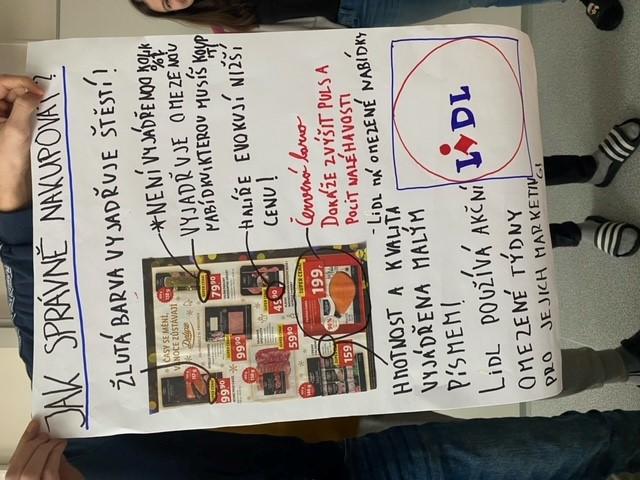 JAK SPRÁVNĚ NAKUPOVAT?
ŽLUTÁ BARVA VYJADŘUJE ŠTĚSTÍ!
*NENÍ VYJÁDŘENOO KOLIK
VYJADŘUJE OMEZENOU
NABÍDKU KTEROU MUSÍŠ KOUP
HALÍŘE EVOKUJÍ NIŽŠÍ
CENU!
Červená barva
DOKÁŽE ZVÝŠIT PULS A
POCIT NALÉHAVOSTI
- LIDL MÁ OMEZENÉ NABÍDKY
ČASY SE MĚNÍ,
VÁNOCE ZŮSTÁVAJÍ
Deluxe
79.90
99.90
45.90
199.-
99.90
59.90
159.-
HMOTNOST A KVALITA
VYJÁDŘENA MALÝM
PÍSMEM!
LIDL POUŽÍVÁ AKČNÍ
OMEZENÉ TÝDNY
PRO JEJICH MARKETINGI
LIDL